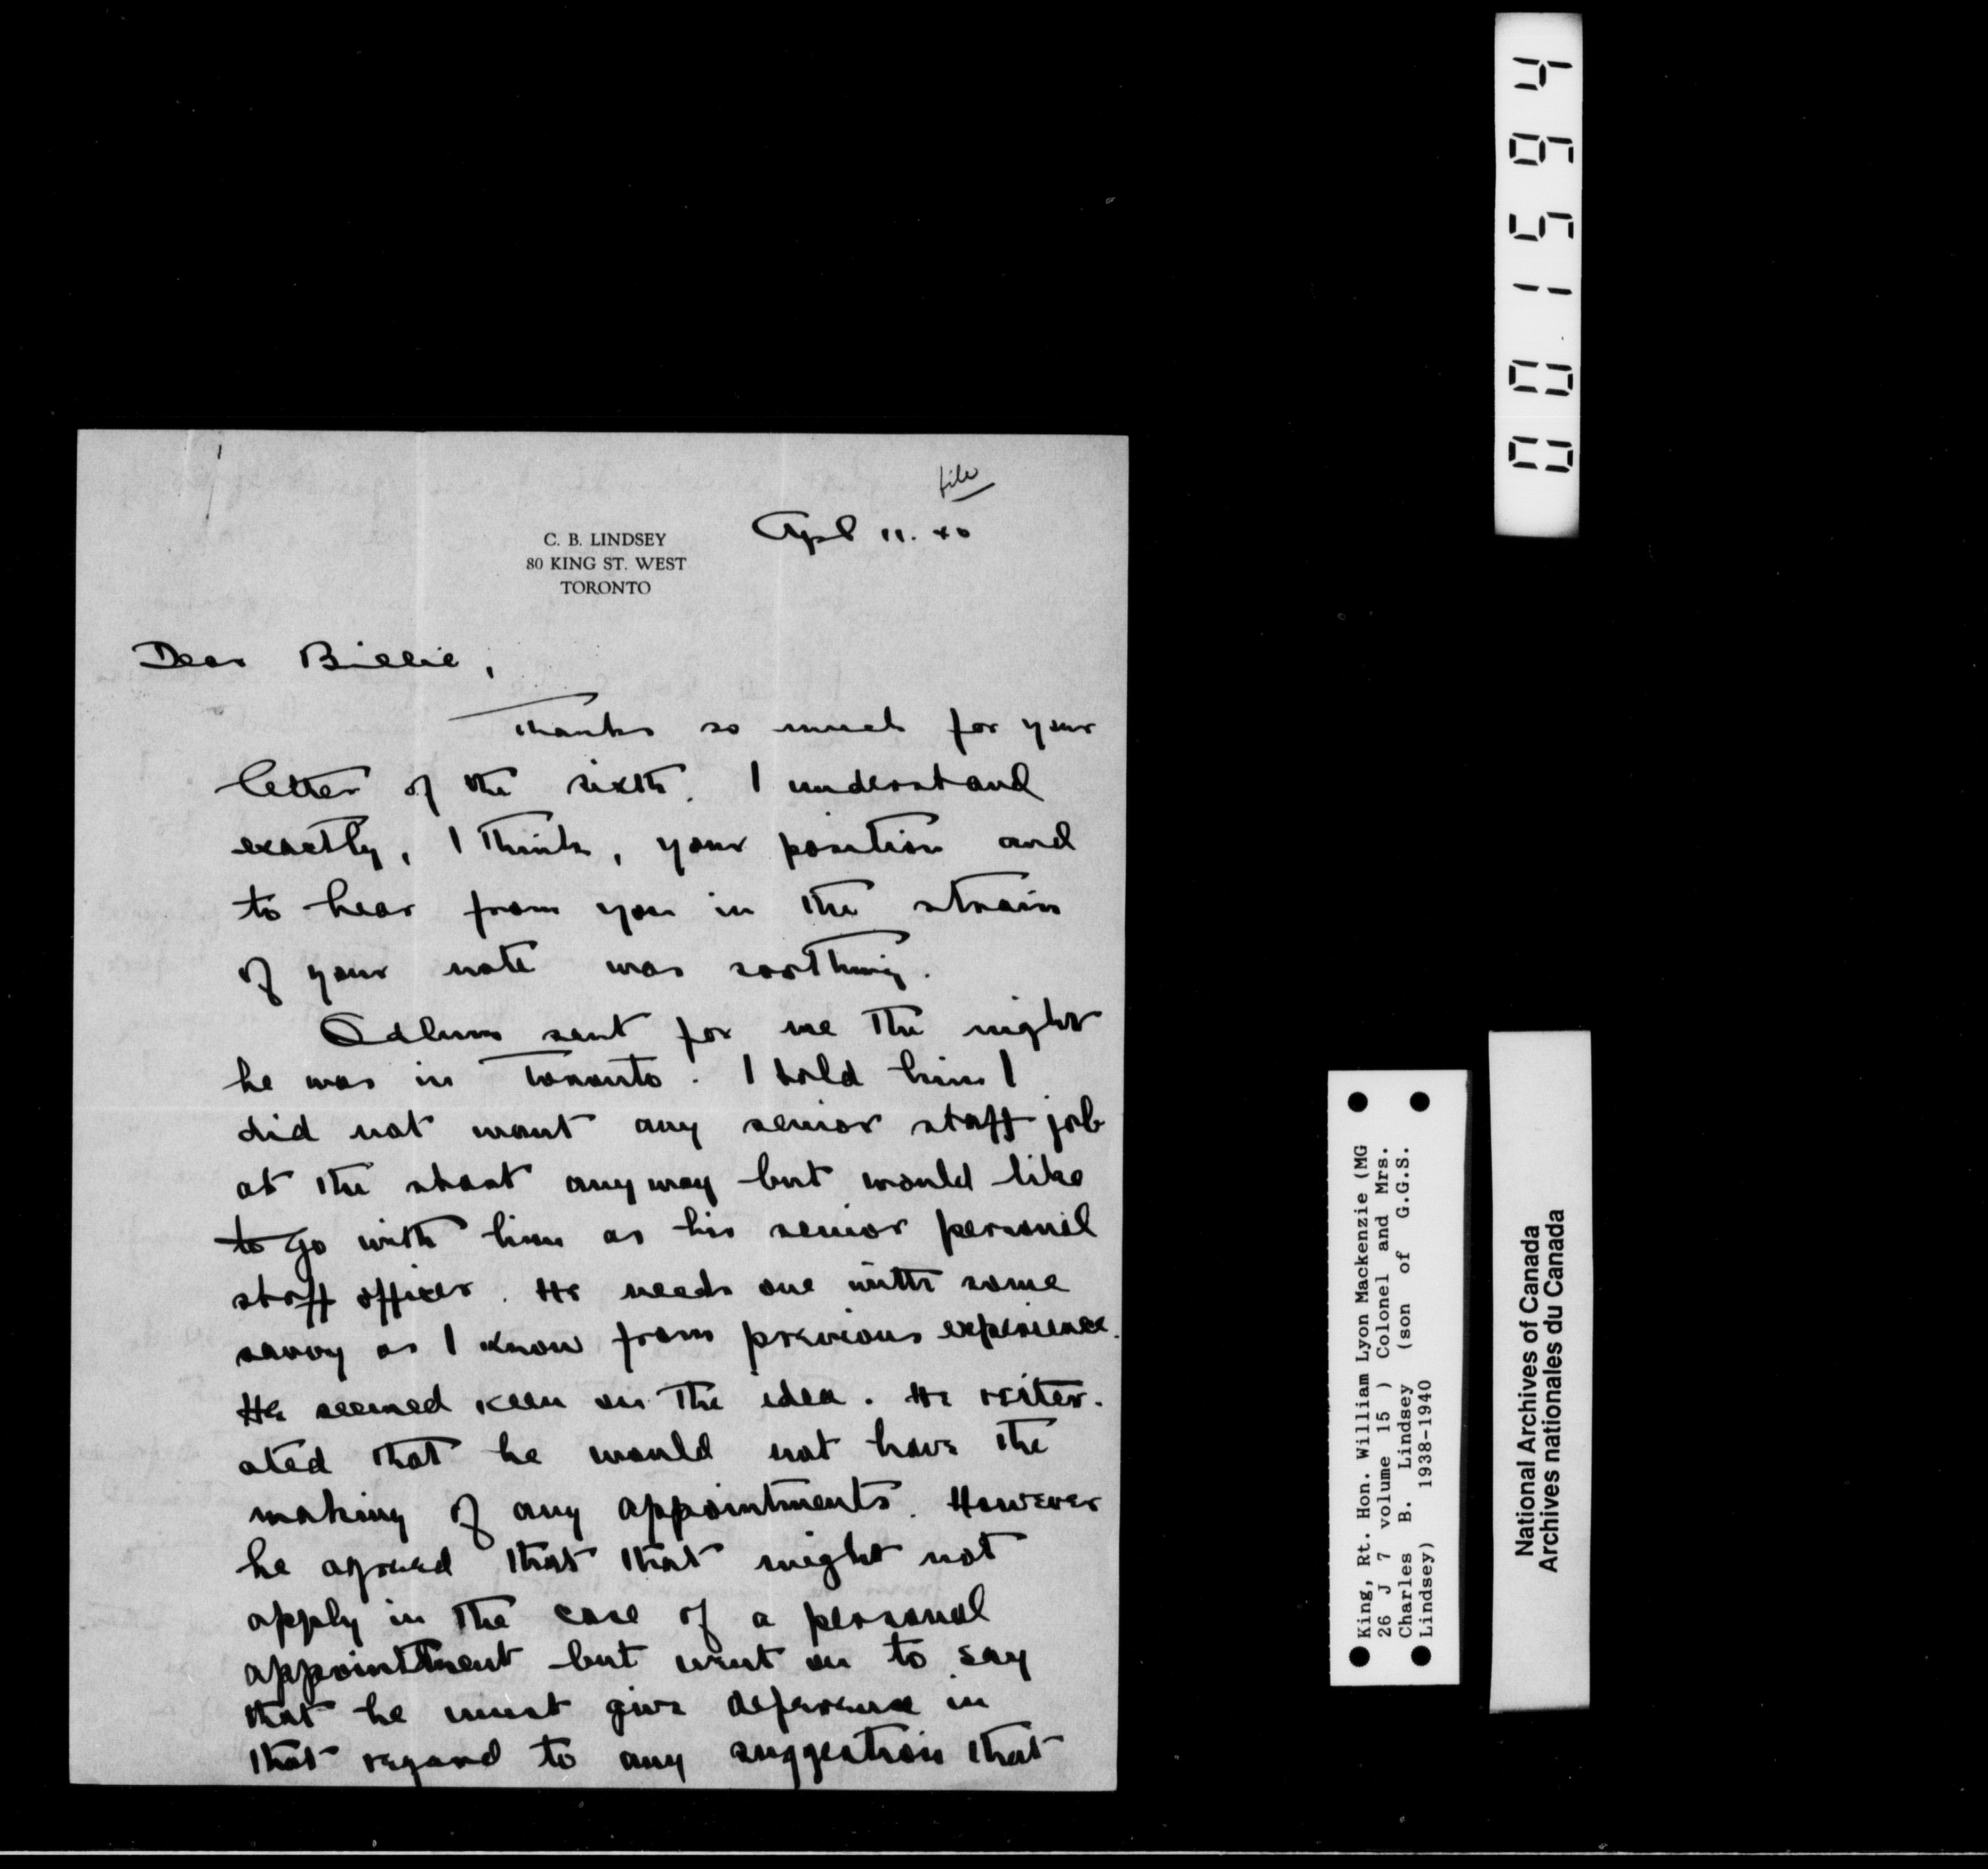 file
Apl 11. 40
C. B. LINDSEY
80 KING ST. WEST
TORONTO
Dear Billie,
Thanks so much for your
letter of the sixth. I understand
exactly, I think, your position and
to hear from you in the strain
of your note was soothing.
Odlum sent for me the night
he was in Toronto. I told him I
did not want any senior staff job
at the start anyway but would like
to go with him as his senior personal
staff officer. He needs one with some
savvy as I know from previous experience.
He seemed keen on the idea. He reiter-
ated that he would not have the
making of any appointments. However
he agreed that that might not
apply in the case of a personal
appointment but went on to say
that he must give deference in
that regard to any suggestion that
King, Rt. Hon. William Lyon Mackenzie (MG
26 J 7 volume 15 ) Colonel and Mrs.
Charles B. Lindsey (son of G.G.S.
Lindsey) 1938-1940
National Archives of Canada
Archives nationales du Canada
001564